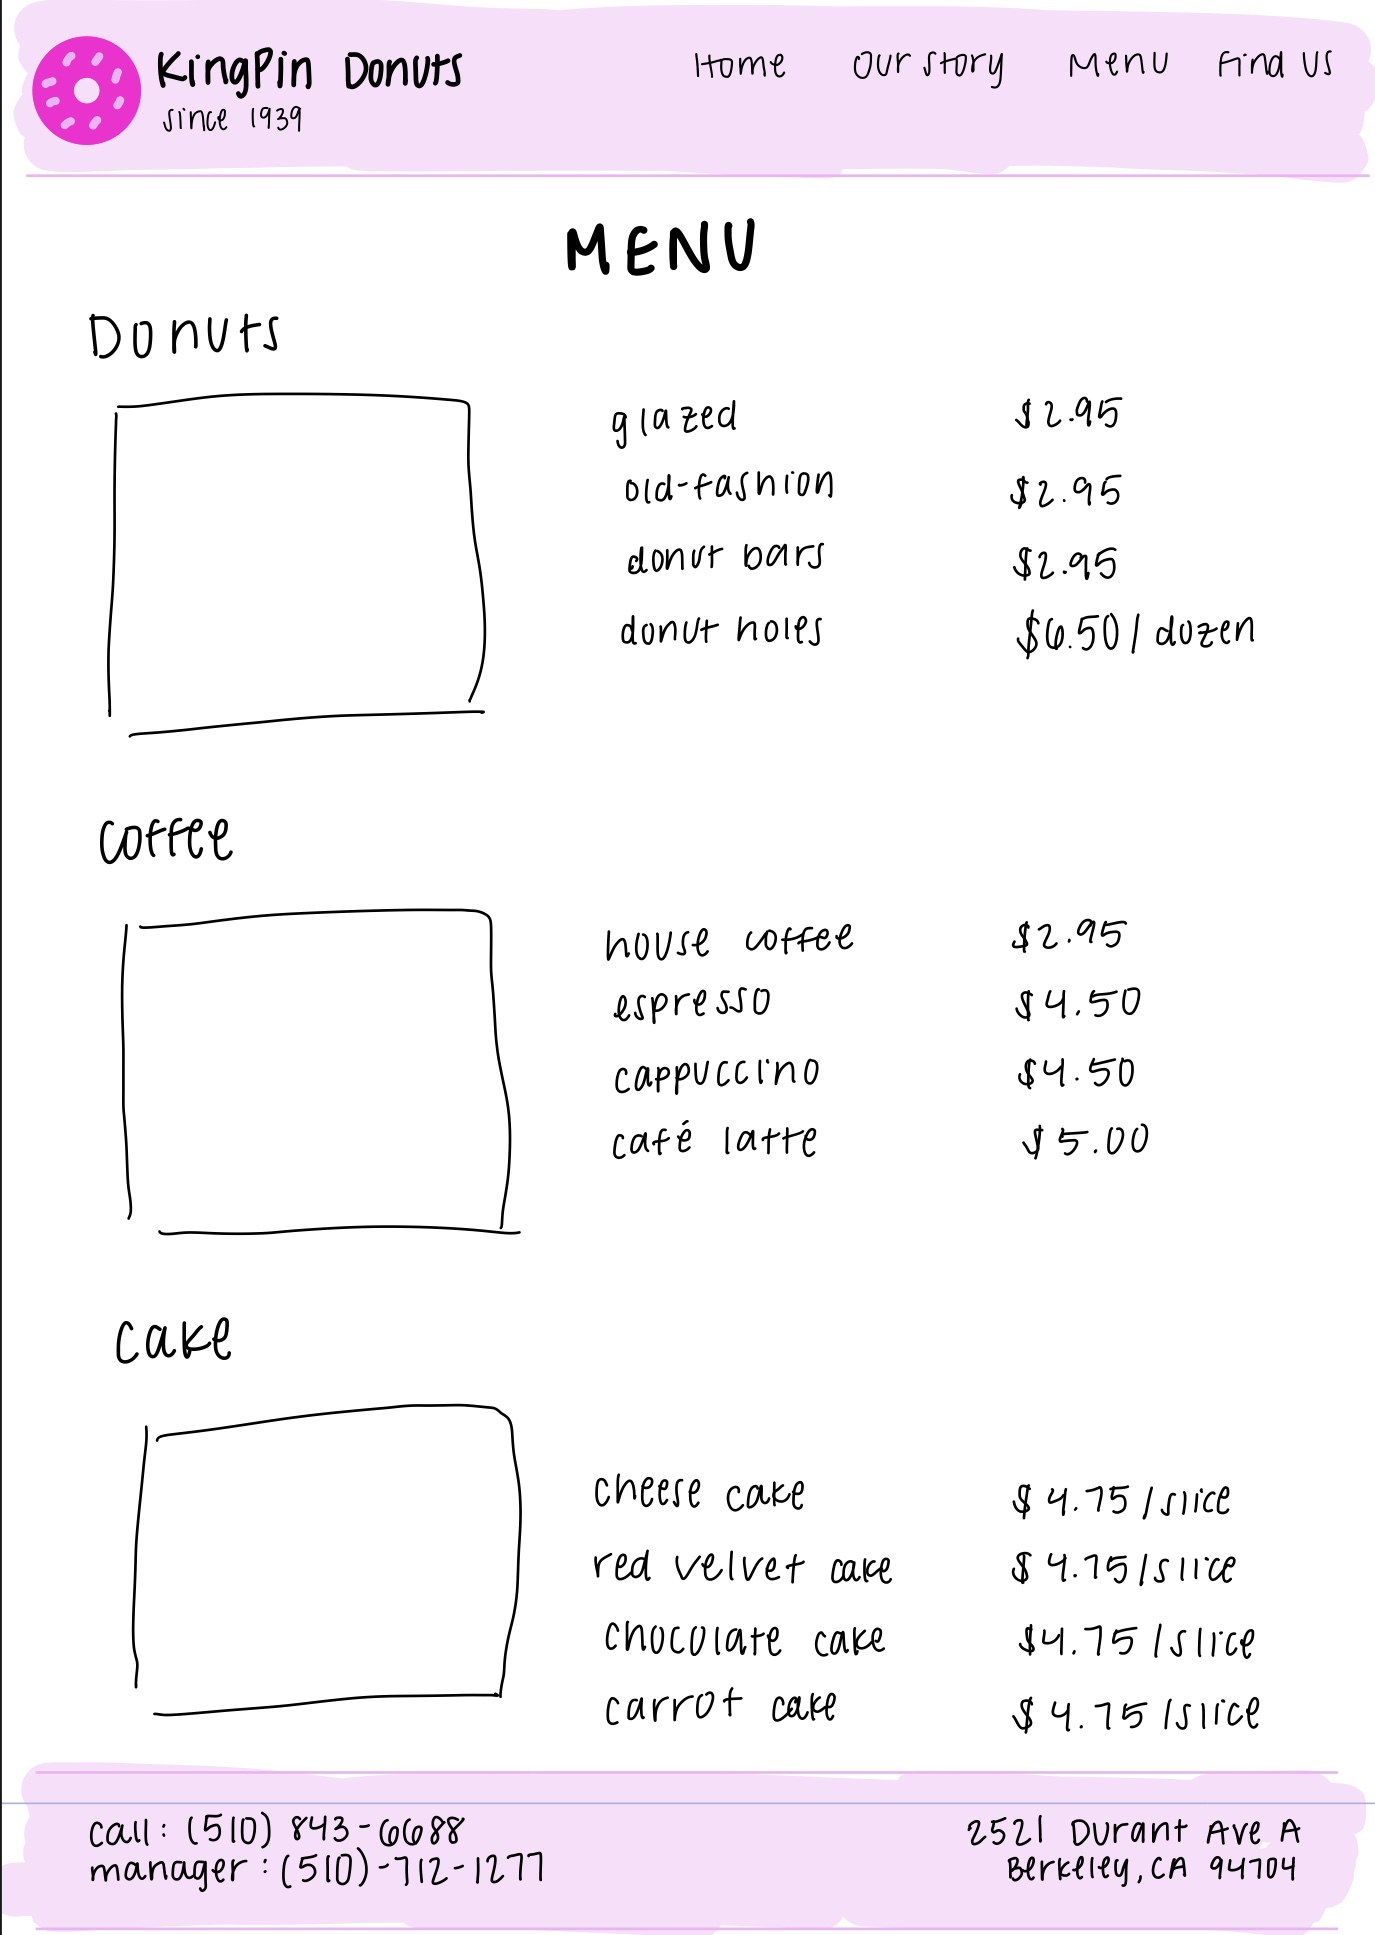 KingPin Donuts
since 1939
Home Our story Menu Find us
MENU
Donuts
glazed $2.95
old-fashion $2.95
donut bars $2.95
donut holes $6.50/dozen
coffee
house coffee $2.95
espresso $4.50
cappuccino $4.50
café latte $5.00
cake
cheese cake $4.75/slice
red velvet cake $4.75/slice
chocolate cake $4.75/slice
carrot cake $4.75/slice
call: (510) 843-6688
manager: (510)-712-1277
2521 Durant Ave A
Berkeley, CA 94704